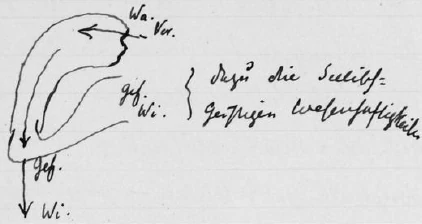 Wa.
Vor.
gef.
Wi.
dazu die Seelisch=
Geistigen Wesenhaftigkeiten
Gef.
Wi.